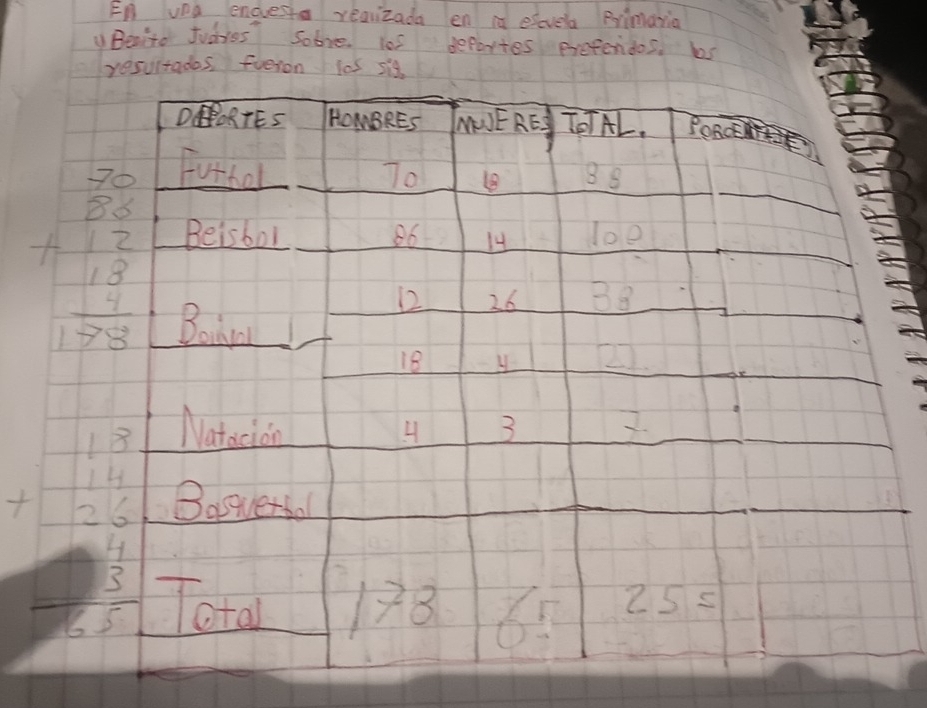 En una encuesta realizada en la escuela Primaria
"Benito Juárez" sobre los deportes Preferidos. los
resultados fueron los sig.
DEPORTES HOMBRES MUJERES TOTAL.
70 Futbol 70 18 88
86
+ 12 Beisbol 86 14 100
18
4 12 26 38
178
18 4 22
18 Natación 4 3 7
14
+ 26 Basquetbol
4
3
65 Total 178 65 255